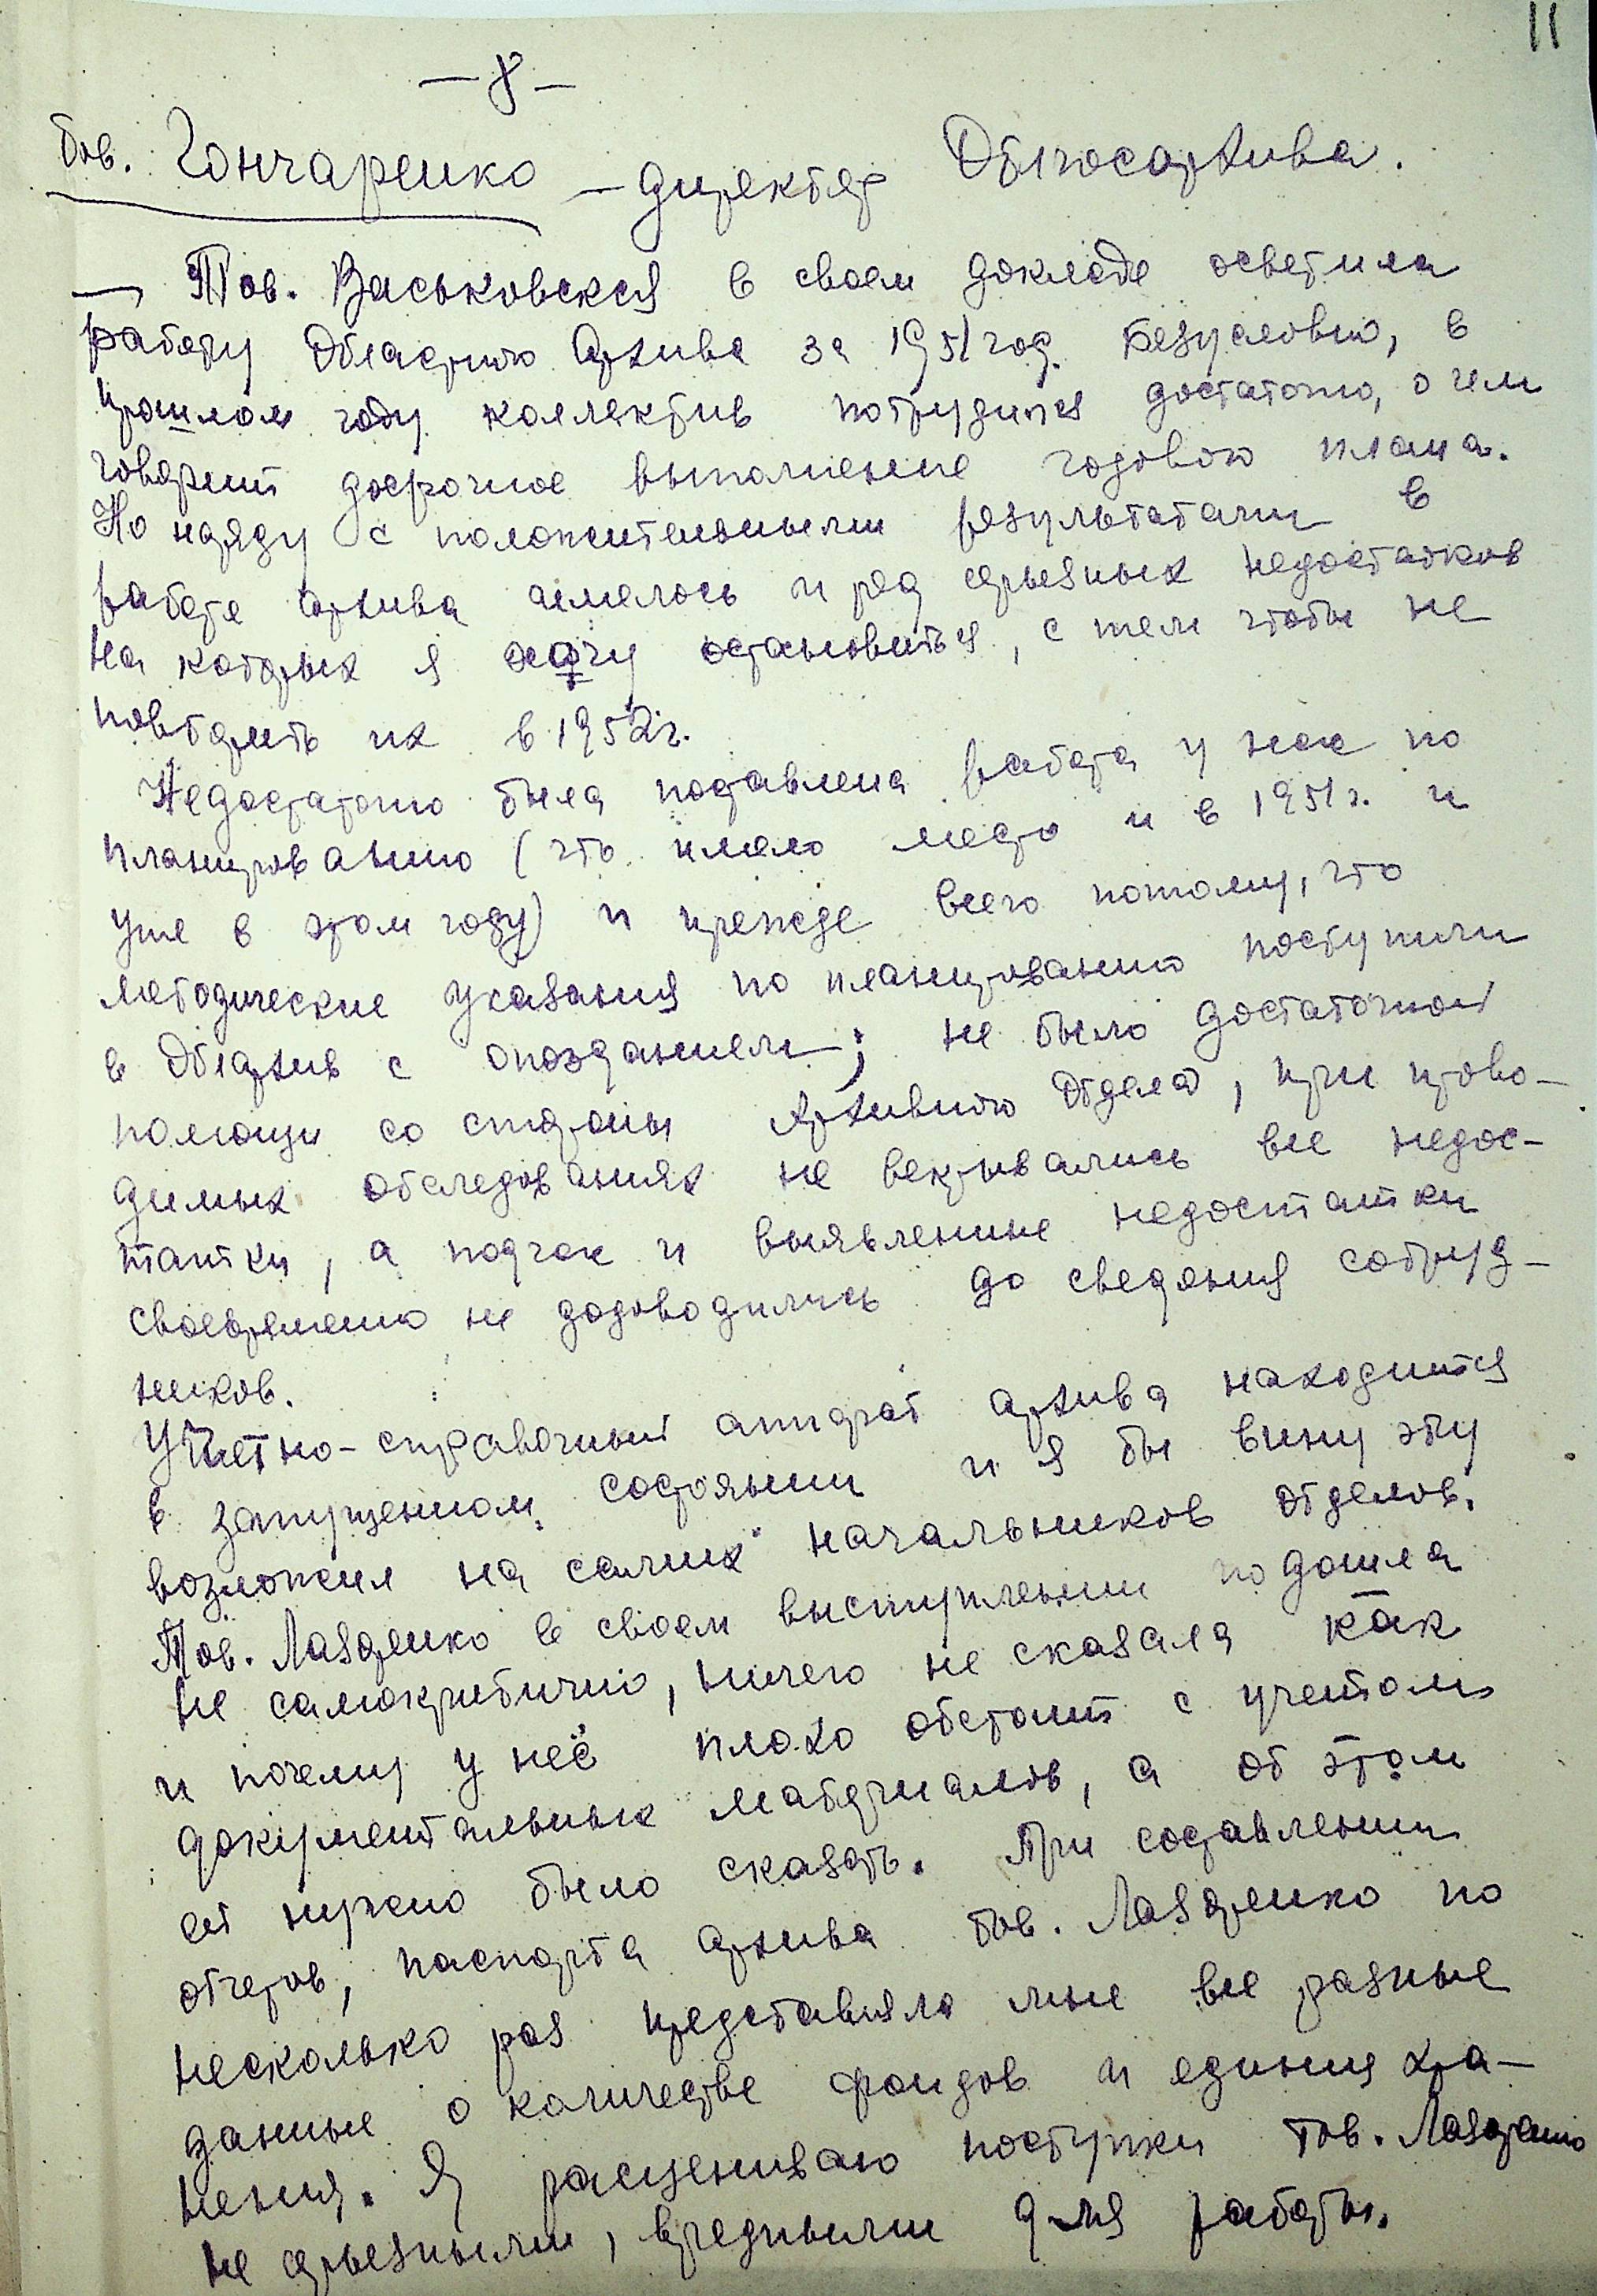 11
— 8 —
тов. Гончаренко — директор Облгосархива.
— Тов. Васьковская в своем докладе осветила
работу Областного Архива за 1951 год. Безусловно, в
прошлом году коллектив потрудился достаточно, о чем
говорит досрочное выполнение годового плана.
Но наряду с положительными результатами в
работе архива имелось и ряд серьезных недостатков
на которых я хочу остановиться, с тем чтобы не
повторить их в 1952 г.
Недостаточно была поставлена работа у нас по
планированию (что имело место и в 1951 г. и
уже в этом году) и прежде всего потому, что
методические указания по планированию поступили
в Облархив с опозданием; не было достаточной
помощи со стороны Архивного Отдела, при прово-
димых обследованиях не вскрывались все недос-
татки, а подчас и выявленные недостатки
своевременно не додоводились до сведения сотруд-
ников.
Учетно-справочный аппарат архива находится
в запущенном состоянии и я бы вину эту
возложил на самих начальников отделов.
Тов. Лазаренко в своем выступлении подошла
не самокритично, ничего не сказала как
и почему у неё плохо обстоит с учетом
документальных материалов, а об этом
ей нужно было сказать. При составлении
отчетов, паспорта архива тов. Лазаренко по
несколько раз представляла мне все разные
данные о количестве фондов и единиц хра-
нения. Я расцениваю поступки тов. Лазаренко
не серьезными, вредными для работы.